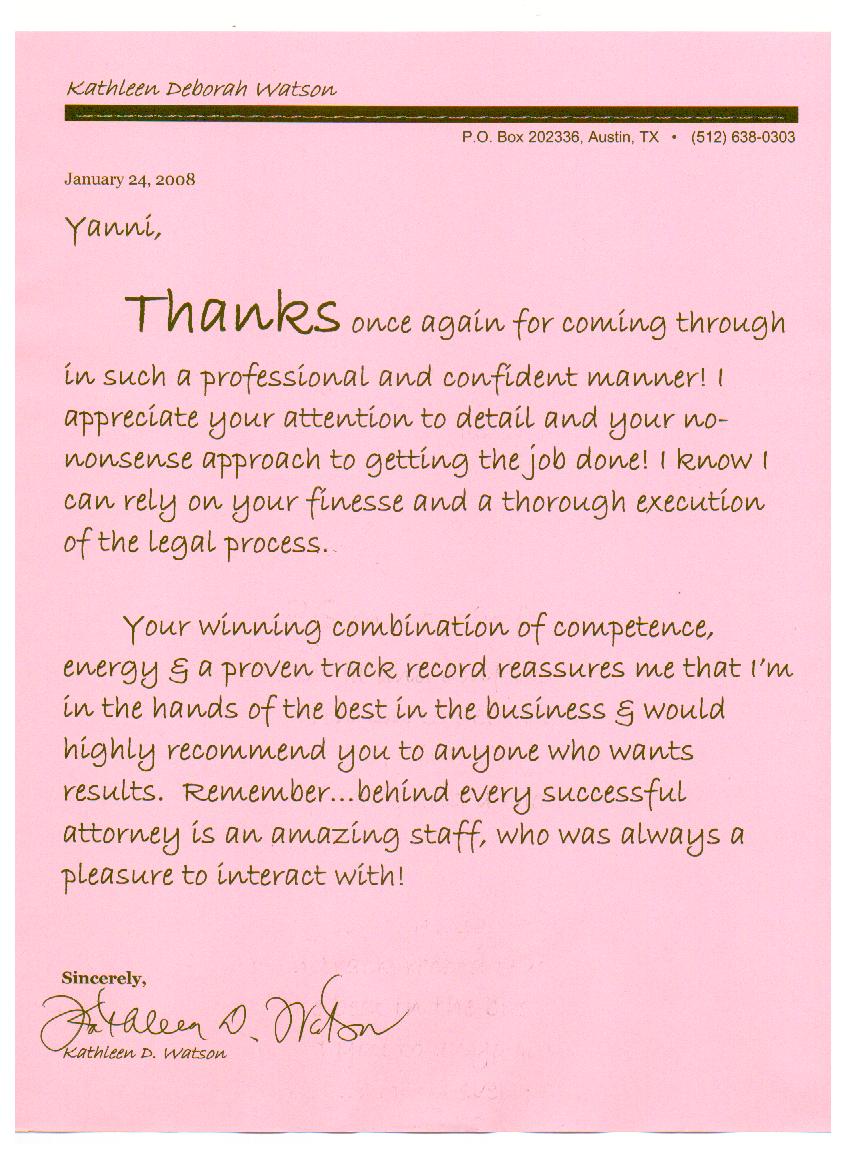 Kathleen Deborah Watson
P.O. Box 202336, Austin, TX • (512) 638-0303
January 24, 2008
Yanni,
Thanks once again for coming through
in such a professional and confident manner! I
appreciate your attention to detail and your no-
nonsense approach to getting the job done! I know I
can rely on your finesse and a thorough execution
of the legal process.
Your winning combination of competence,
energy & a proven track record reassures me that I'm
in the hands of the best in the business & would
highly recommend you to anyone who wants
results. Remember...behind every successful
attorney is an amazing staff, who was always a
pleasure to interact with!
Sincerely,
Kathleen D. Watson
Kathleen D. Watson